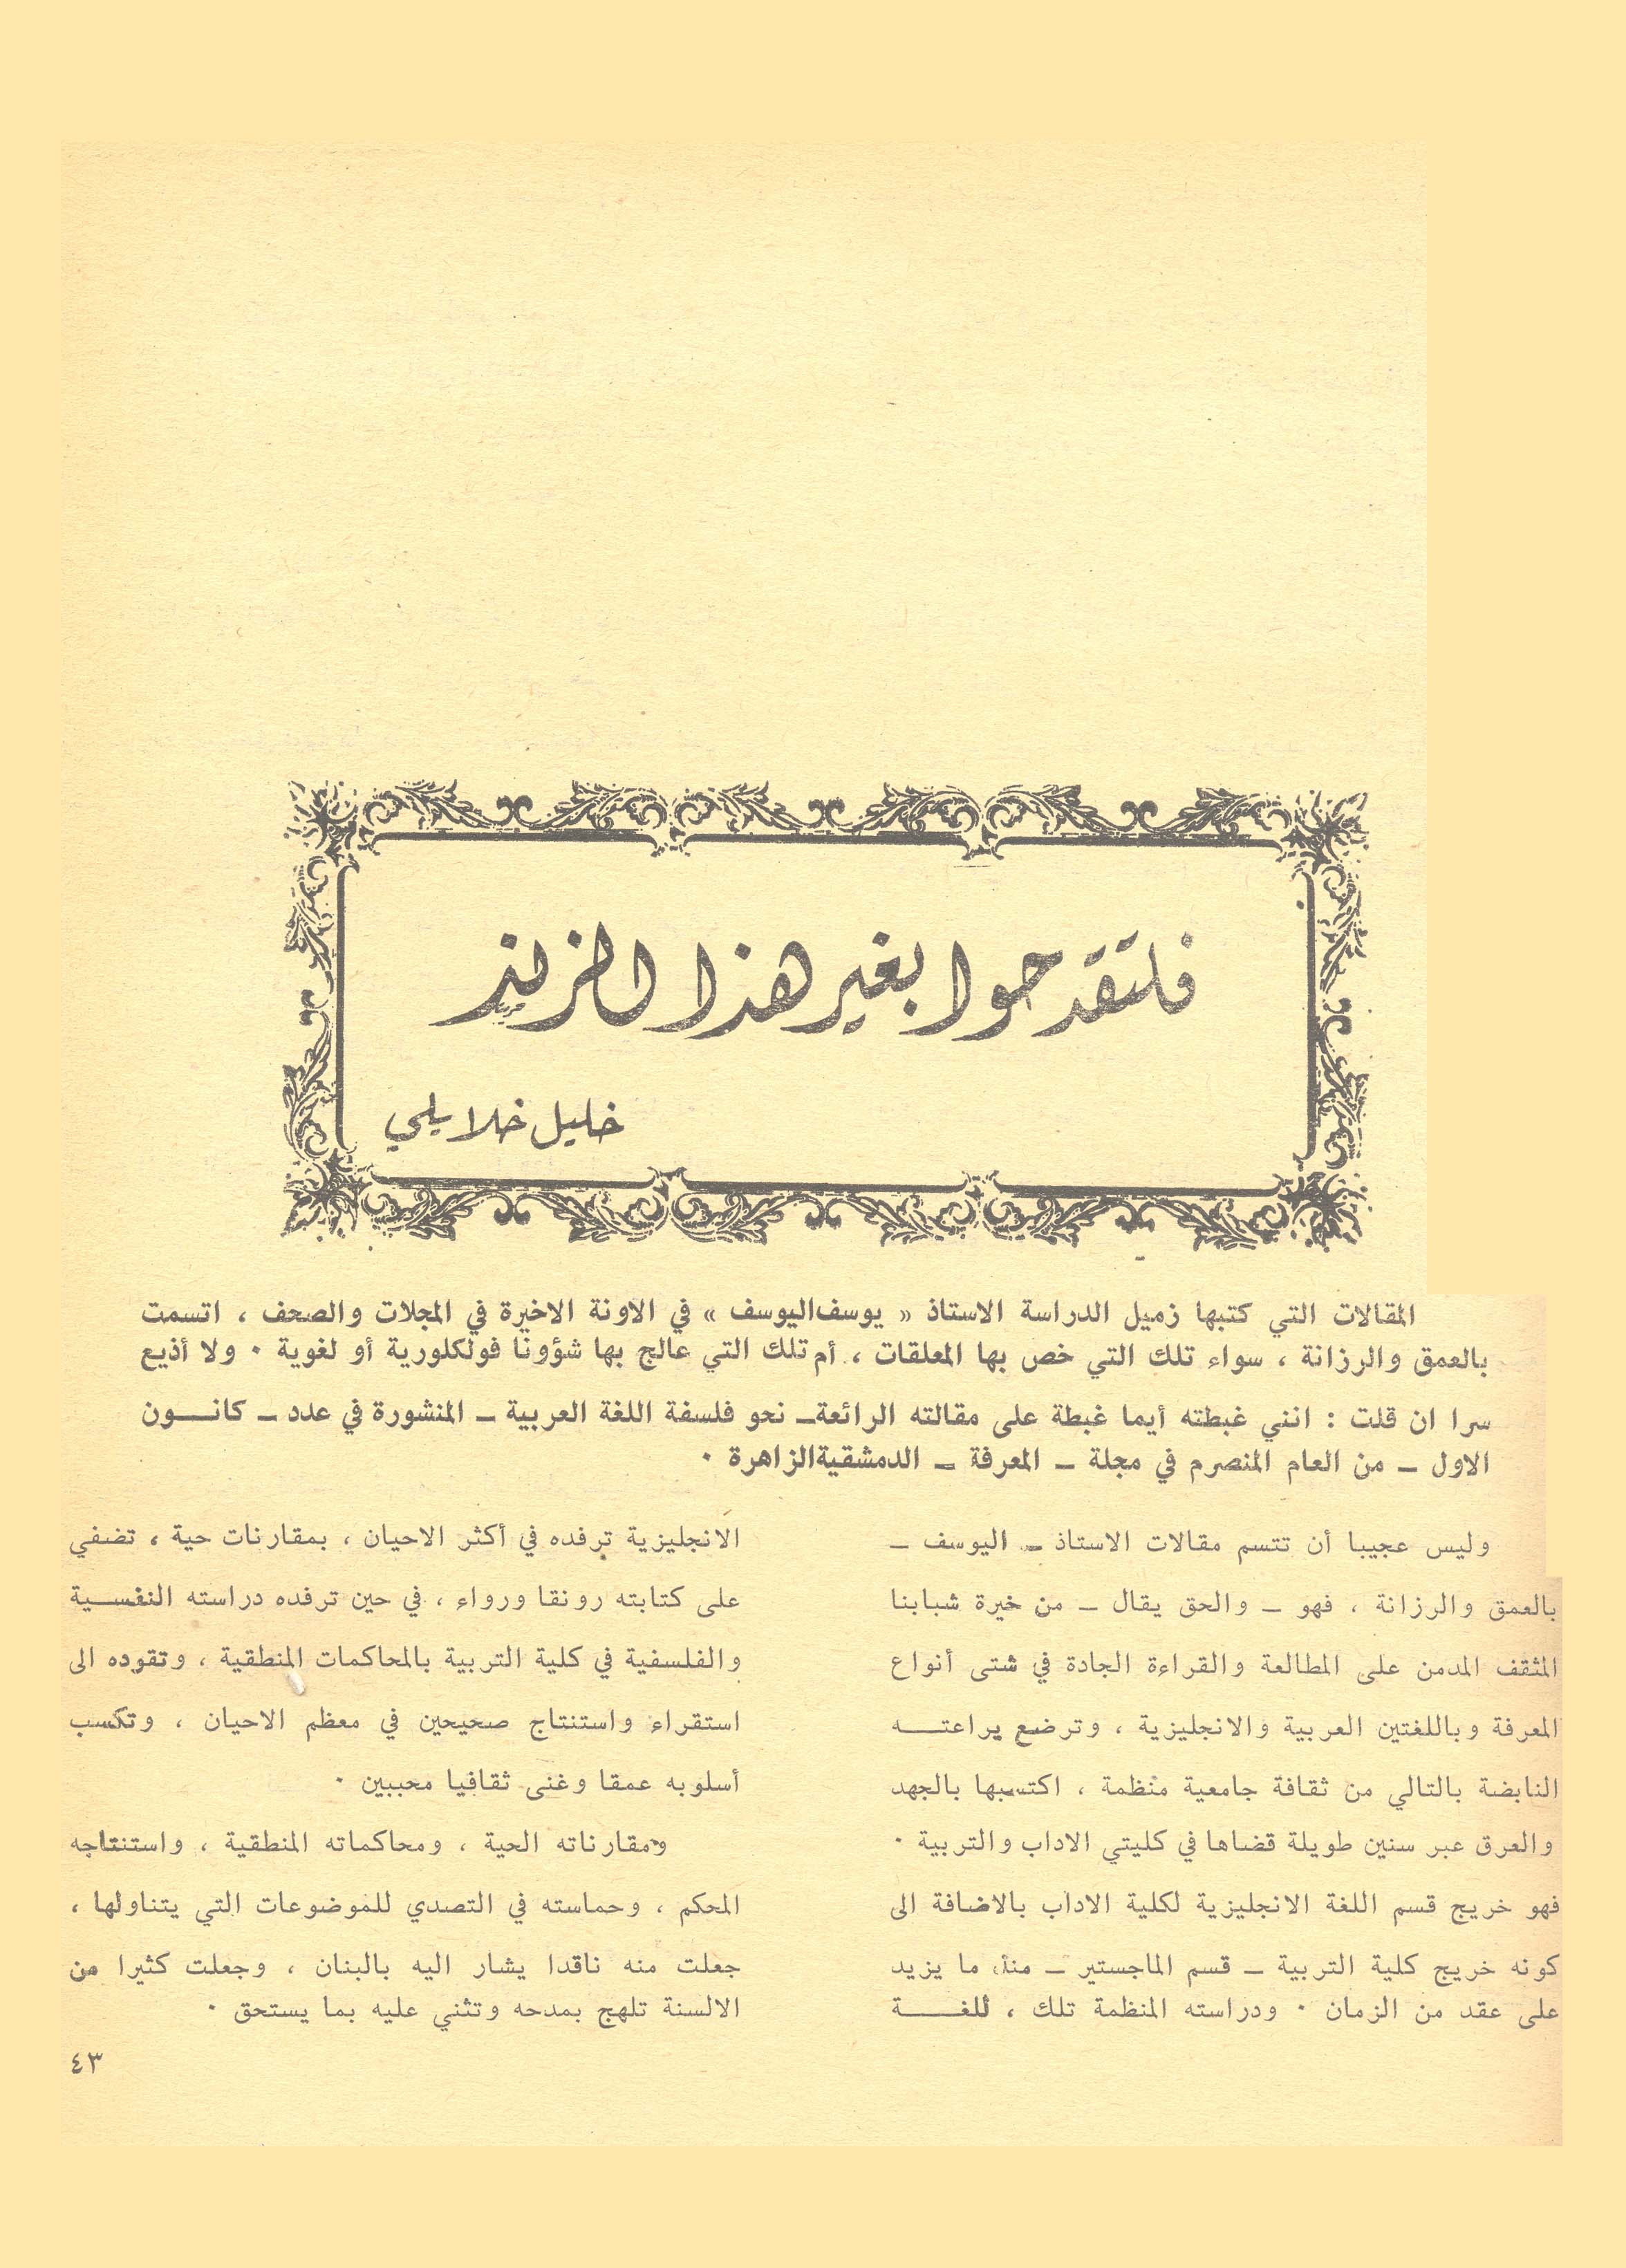 فلتقدحوا بغير هذا الزند
خليل خلايلي
المقالات التي كتبها زميل الدراسة الاستاذ « يوسف اليوسف » في الاونة الاخيرة في المجلات والصحف ، اتسمت
بالعمق والرزانة ، سواء تلك التي خص بها المعلقات ، أم تلك التي عالج بها شؤونا فولكلورية أو لغوية . ولا أذيع
سرا ان قلت : انني غبطته أيما غبطة على مقالته الرائعة ـ نحو فلسفة اللغة العربية ـ المنشورة في عدد ـ كانـــون
الاول ـ من العام المنصرم في مجلة ـ المعرفة ـ الدمشقية الزاهرة .
وليس عجيبا أن تتسم مقالات الاستاذ ـ اليوسف ـ
بالعمق والرزانة ، فهو ـ والحق يقال ـ من خيرة شبابنا
المثقف المدمن على المطالعة والقراءة الجادة في شتى أنواع
المعرفة وباللغتين العربية والانجليزية ، وترضع يراعتـــه
النابضة بالتالي من ثقافة جامعية منظمة ، اكتسبها بالجهد
والعرق عبر سنين طويلة قضاها في كليتي الاداب والتربية .
فهو خريج قسم اللغة الانجليزية لكلية الاداب بالاضافة الى
كونه خريج كلية التربية ـ قسم الماجستير ـ منذ ما يزيد
على عقد من الزمان . ودراسته المنظمة تلك ، للغـــــة
الانجليزية ترفده في أكثر الاحيان ، بمقارنات حية ، تضفي
على كتابته رونقا ورواء ، في حين ترفده دراسته النفســية
والفلسفية في كلية التربية بالمحاكمات المنطقية ، وتقوده الى
استقراء واستنتاج صحيحين في معظم الاحيان ، وتكسب
أسلوبه عمقا وغنى ثقافيا محببين .
ومقارناته الحية ، ومحاكماته المنطقية ، واستنتاجه
المحكم ، وحماسته في التصدي للموضوعات التي يتناولها ،
جعلت منه ناقدا يشار اليه بالبنان ، وجعلت كثيرا من
الالسنة تلهج بمدحه وتثني عليه بما يستحق .
٤٣